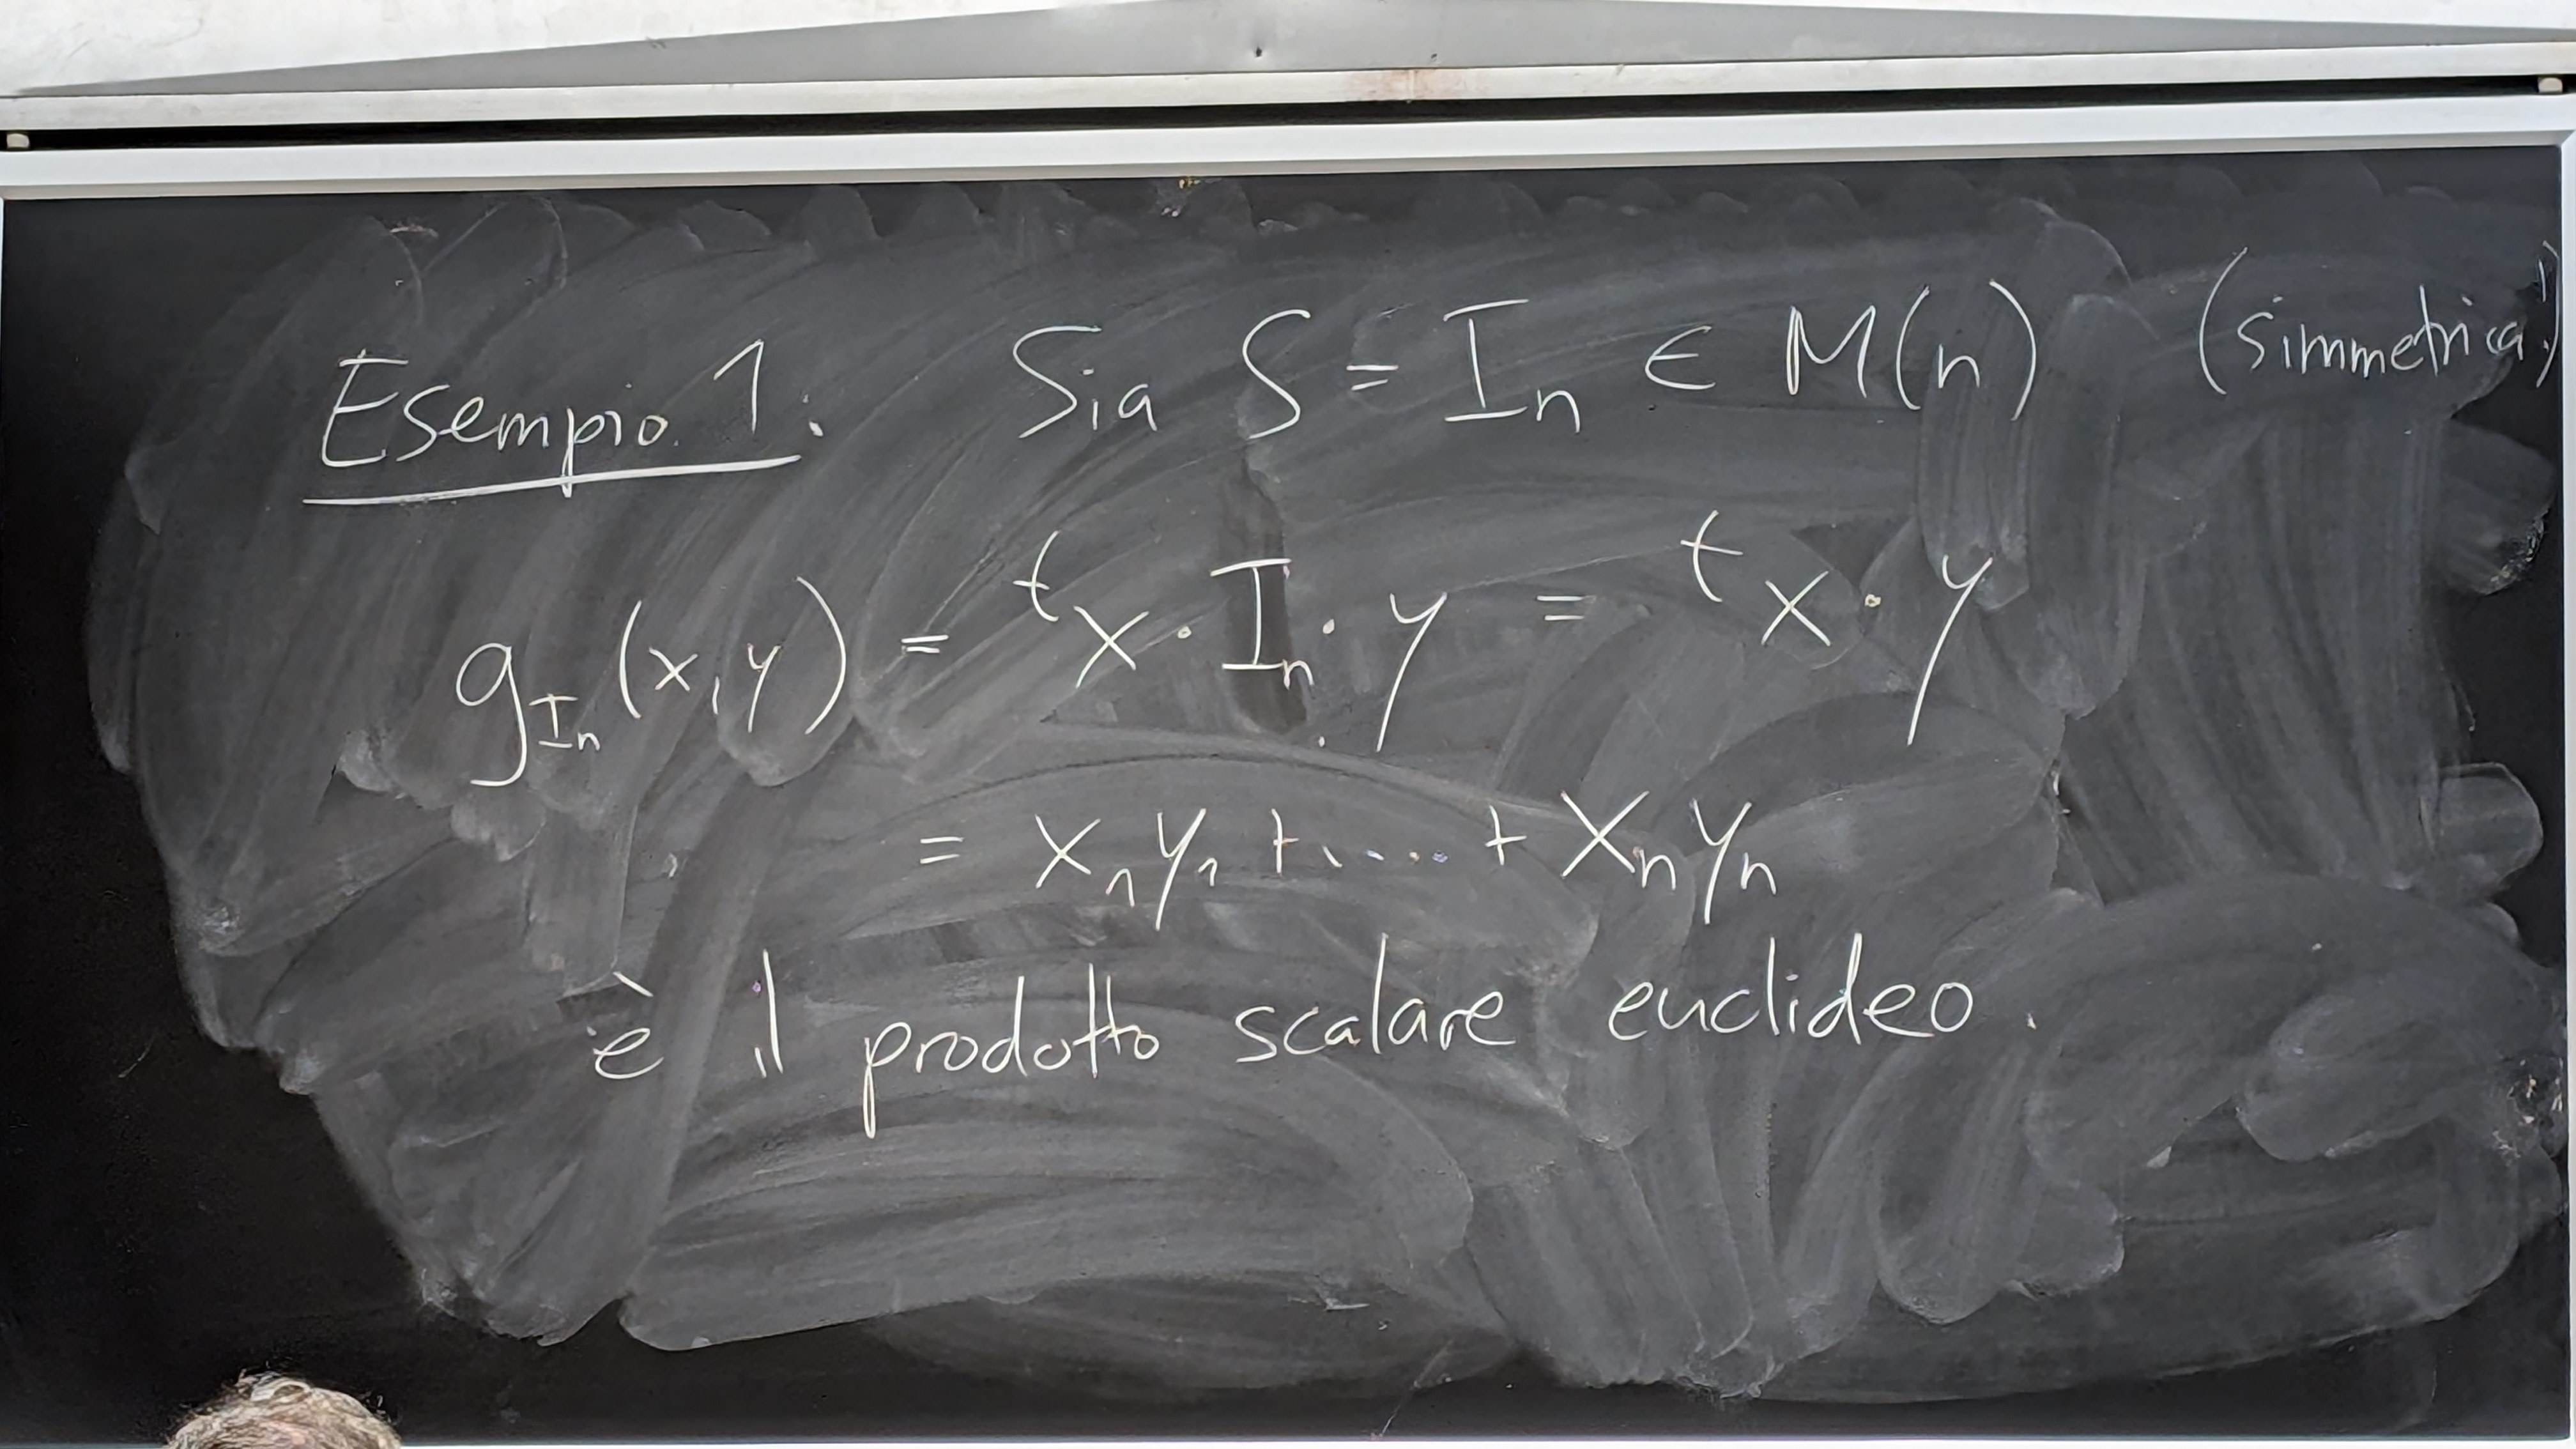 Esempio 1: Sia S = Iₙ ∈ M(n) (simmetrica!)
g_Iₙ(x,y) = ᵗx · Iₙ · y = ᵗx · y
= x₁y₁ + .... + xₙyₙ
è il prodotto scalare euclideo.